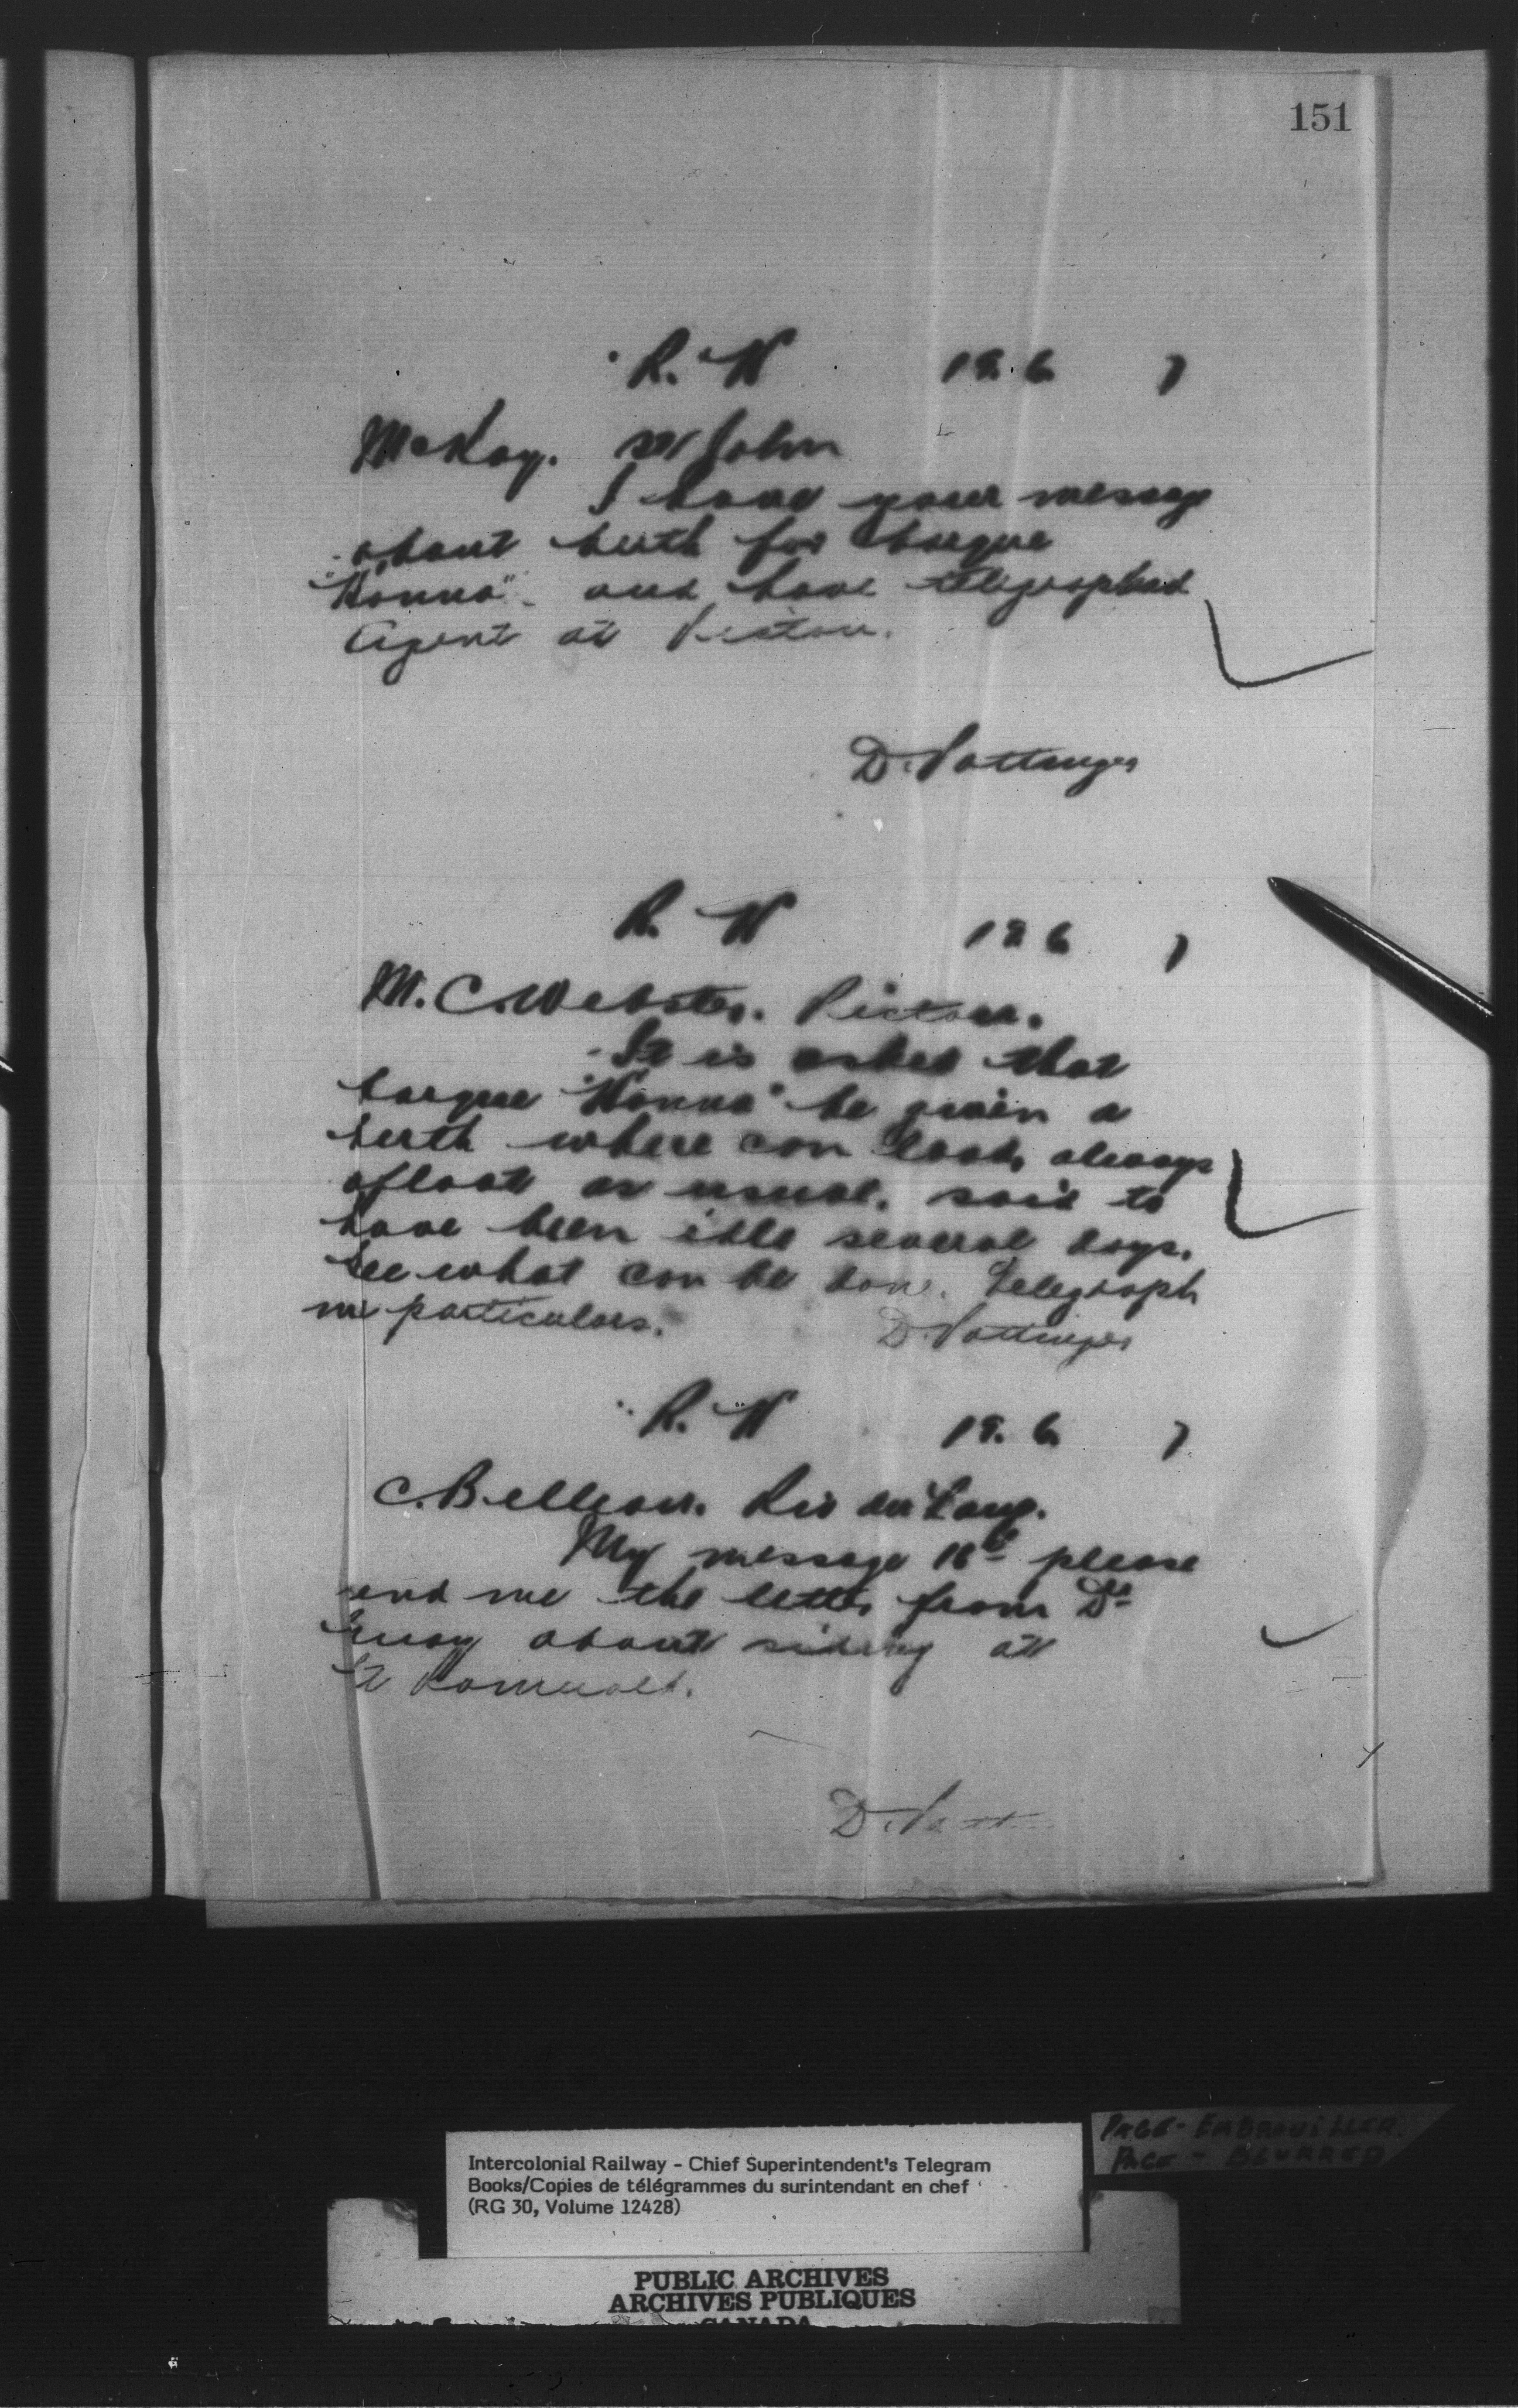 151
R. W 19. 6. 7
McKay. St John
I have your message
about berth for barque
"Nonna" and have telegraphed
Agent at Pictou.
D. Pottinger
R. W 19 6 7
M. C. Webster. Pictou.
It is asked that
barque "Nonna" be given a
berth where can load, always
afloat as usual. said to
have been idle several days.
See what can be done. Telegraph
me particulars.
D. Pottinger
R. W 19. 6. 7
C. Belleau. Riv du Loup.
My message 18th please
send me the letter from Dr
about siding at
St Romuald.
D. Pott
PAGE - EMBROUILLER.
PAGE - BLURRED
Intercolonial Railway - Chief Superintendent's Telegram
Books/Copies de télégrammes du surintendant en chef
(RG 30, Volume 12428)
PUBLIC ARCHIVES
ARCHIVES PUBLIQUES
CANADA